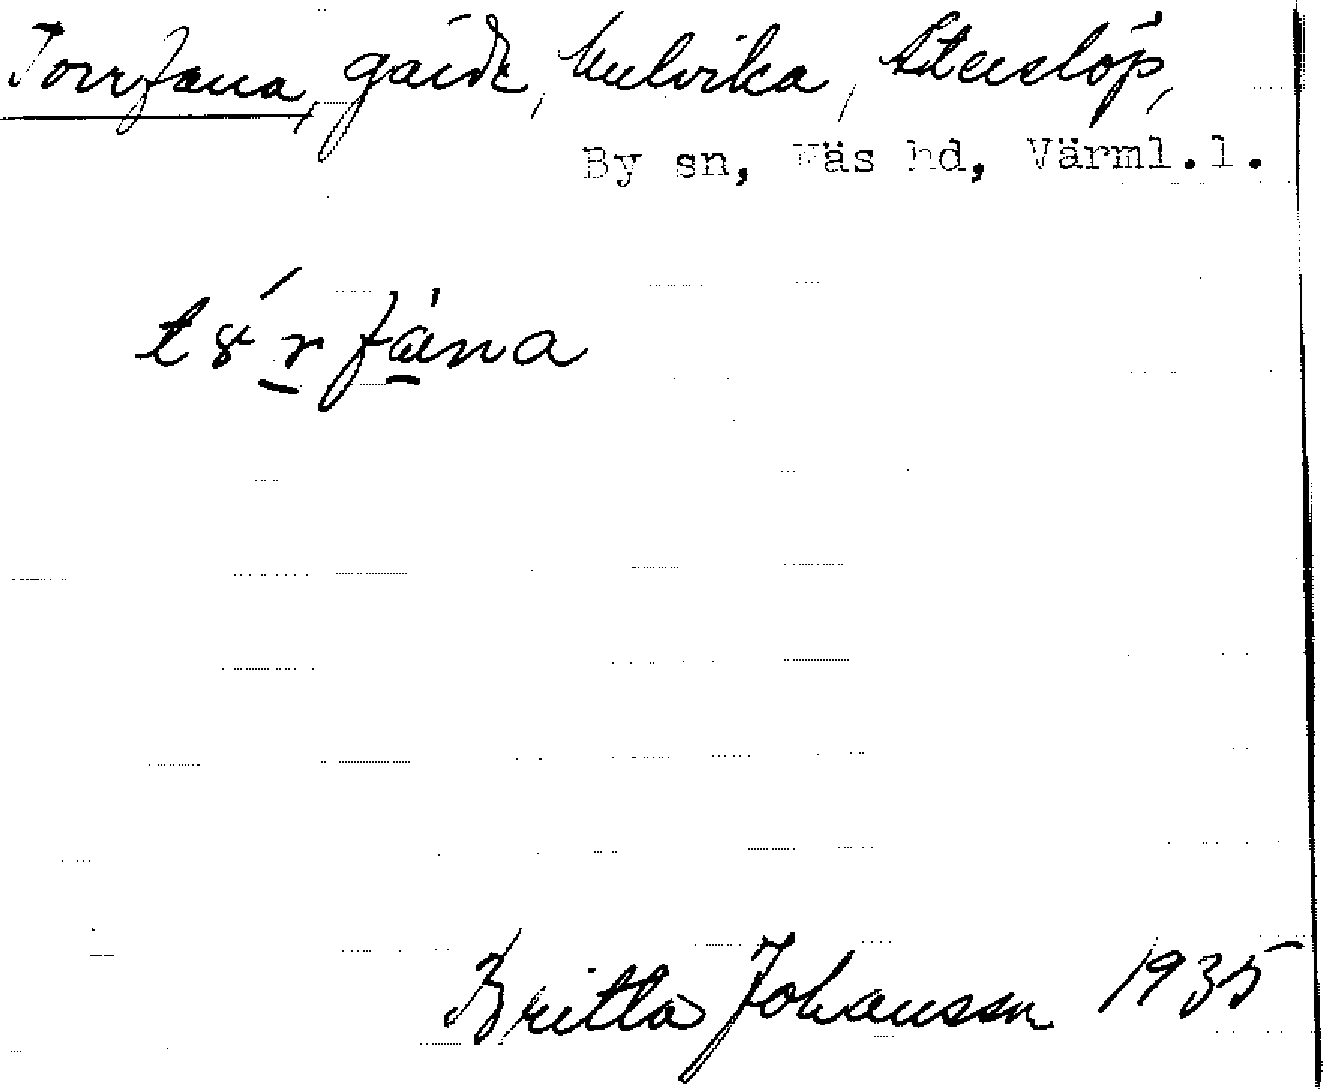 Torrfana, gärde, Hulvika, Stenslöp,
By sn, Näs hd, Värml.l.
Britta Johansson 1935